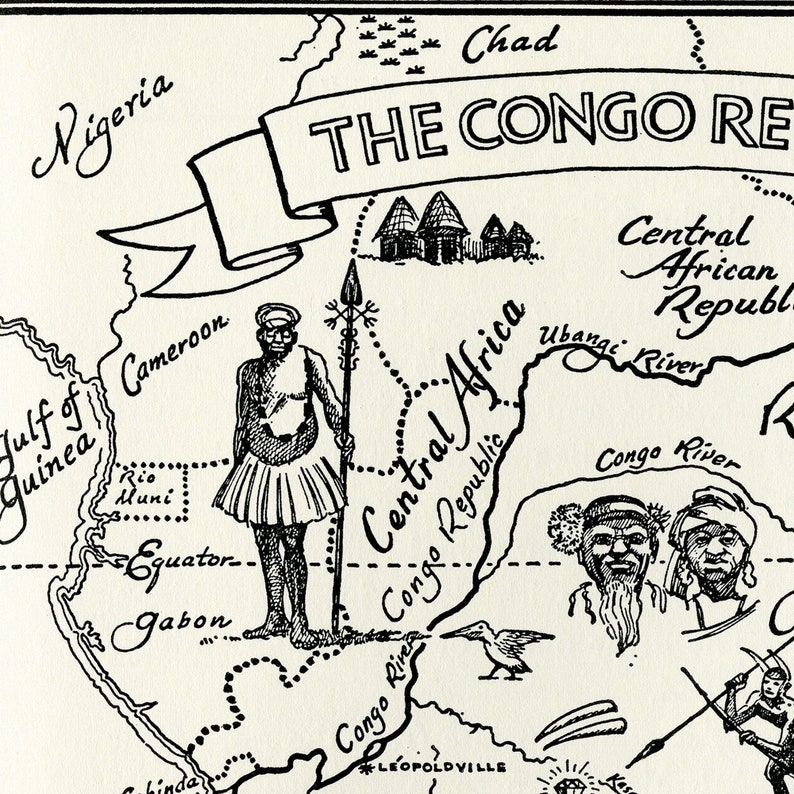 Chad
Nigeria
THE CONGO RE
Central
African
Republi
Cameroon
Ubangi River
Central Africa
Gulf of
Guinea
Congo River
Congo Republic
Rio
Muni
Equator
Gabon
Congo River
LÉOPOLDVILLE
Cabinda